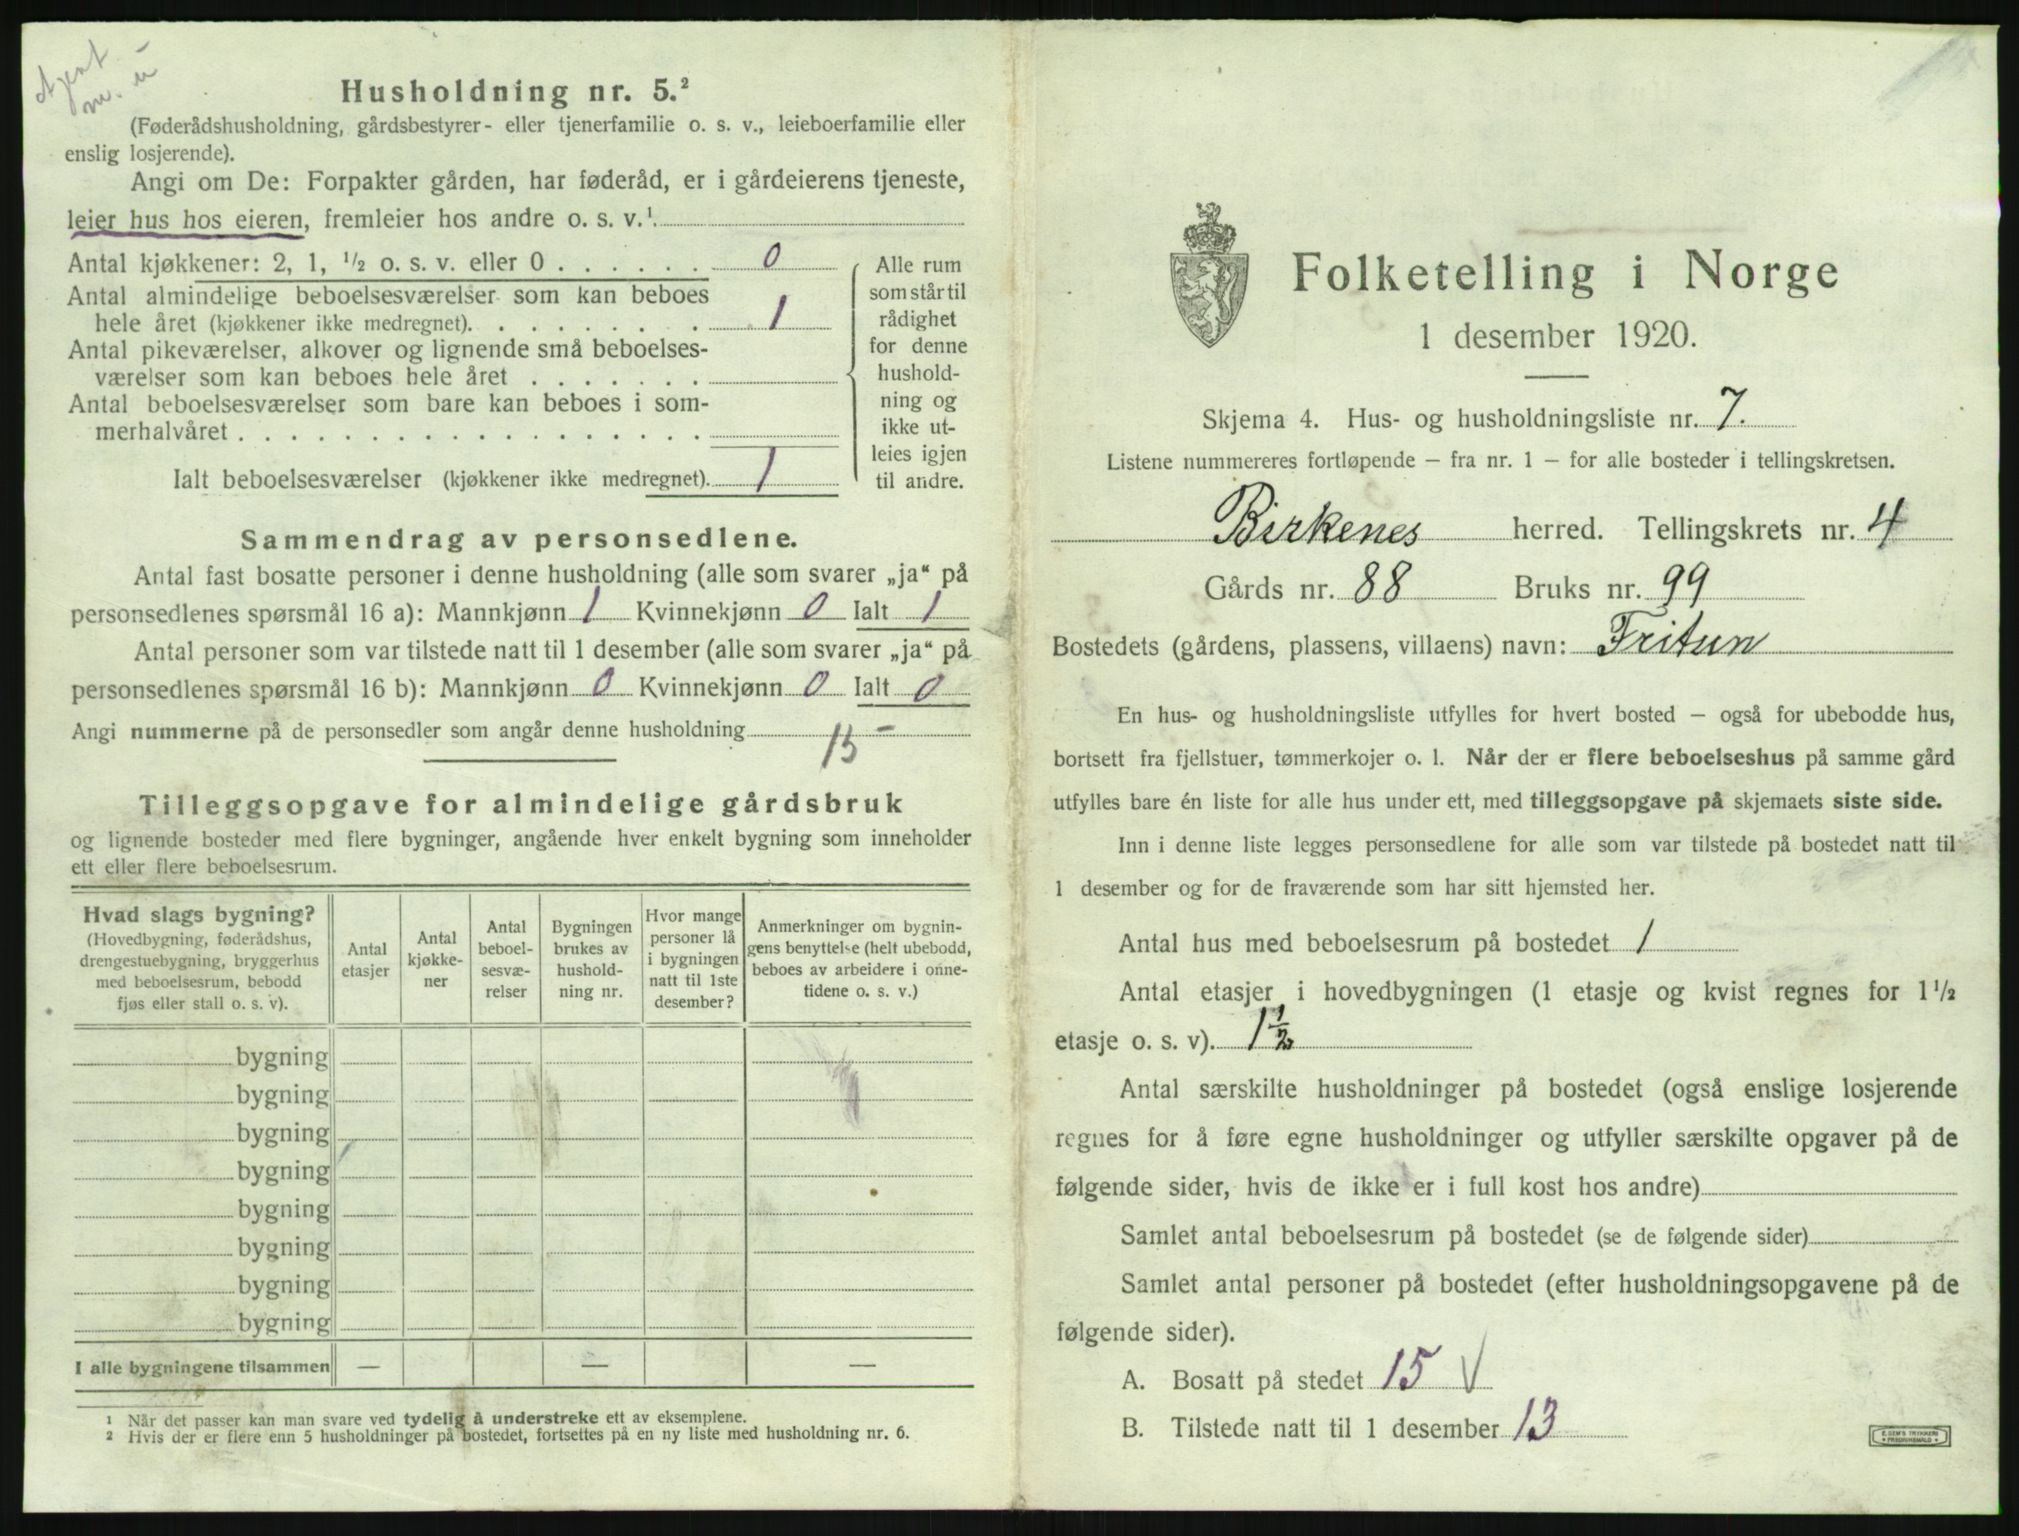 Agent
m. u
Husholdning nr. 5.²
(Føderådshusholdning, gårdsbestyrer- eller tjenerfamilie o. s. v., leieboerfamilie eller
enslig losjerende).
Angi om De: Forpakter gården, har føderåd, er i gårdeierens tjeneste,
leier hus hos eieren, fremleier hos andre o. s. v.¹
Antal kjøkkener: 2, 1, ½ o. s. v. eller 0 . . . . . . 0
Antal almindelige beboelsesværelser som kan beboes
hele året (kjøkkener ikke medregnet). . . . . . . . 1
Antal pikeværelser, alkover og lignende små beboelses-
værelser som kan beboes hele året . . . . . . .
Antal beboelsesværelser som bare kan beboes i som-
merhalvåret . . . . . . . . . . . . . . . . . .
Ialt beboelsesværelser (kjøkkener ikke medregnet). 1
Alle rum
som står til
rådighet
for denne
hushold-
ning og
ikke ut-
leies igjen
til andre.
Sammendrag av personsedlene.
Antal fast bosatte personer i denne husholdning (alle som svarer „ja“ på
personsedlenes spørsmål 16 a): Mannkjønn 1 Kvinnekjønn 0 Ialt 1
Antal personer som var tilstede natt til 1 desember (alle som svarer „ja“ på
personsedlenes spørsmål 16 b): Mannkjønn 0 Kvinnekjønn 0 Ialt 0
Angi nummerne på de personsedler som angår denne husholdning 15
Tilleggsopgave for almindelige gårdsbruk
og lignende bosteder med flere bygninger, angående hver enkelt bygning som inneholder
ett eller flere beboelsesrum.
Hvad slags bygning?
(Hovedbygning, føderådshus,
drengestuebygning, bryggerhus
med beboelsesrum, bebodd
fjøs eller stall o. s. v).
Antal
etasjer
Antal
kjøkke-
ner
Antal
beboel-
sesvæ-
relser
Bygningen
brukes av
hushold-
ning nr.
Hvor mange
personer lå
i bygningen
natt til 1ste
desember?
Anmerkninger om bygnin-
gens benyttelse (helt ubebodd,
beboes av arbeidere i onne-
tidene o. s. v.)
bygning
bygning
bygning
bygning
bygning
bygning
bygning
bygning
I alle bygningene tilsammen — — —
1 Når det passer kan man svare ved tydelig å understreke ett av eksemplene.
2 Hvis der er flere enn 5 husholdninger på bostedet, fortsettes på en ny liste med husholdning nr. 6.
Folketelling i Norge
1 desember 1920.
Skjema 4. Hus- og husholdningsliste nr. 7.
Listene nummereres fortløpende — fra nr. 1 — for alle bosteder i tellingskretsen.
Birkenes herred. Tellingskrets nr. 4
Gårds nr. 88 Bruks nr. 99
Bostedets (gårdens, plassens, villaens) navn: Fritun
En hus- og husholdningsliste utfylles for hvert bosted — også for ubebodde hus,
bortsett fra fjellstuer, tømmerkojer o. l. Når der er flere beboelseshus på samme gård
utfylles bare én liste for alle hus under ett, med tilleggsopgave på skjemaets siste side.
Inn i denne liste legges personsedlene for alle som var tilstede på bostedet natt til
1 desember og for de fraværende som har sitt hjemsted her.
Antal hus med beboelsesrum på bostedet 1
Antal etasjer i hovedbygningen (1 etasje og kvist regnes for 1½
etasje o. s. v). 1½
Antal særskilte husholdninger på bostedet (også enslige losjerende
regnes for å føre egne husholdninger og utfyller særskilte opgaver på de
følgende sider, hvis de ikke er i full kost hos andre)
Samlet antal beboelsesrum på bostedet (se de følgende sider)
Samlet antal personer på bostedet (efter husholdningsopgavene på de
følgende sider).
A. Bosatt på stedet 15 √
B. Tilstede natt til 1 desember 13
E. SEM'S TRYKKERI
FREDRIKSHALD